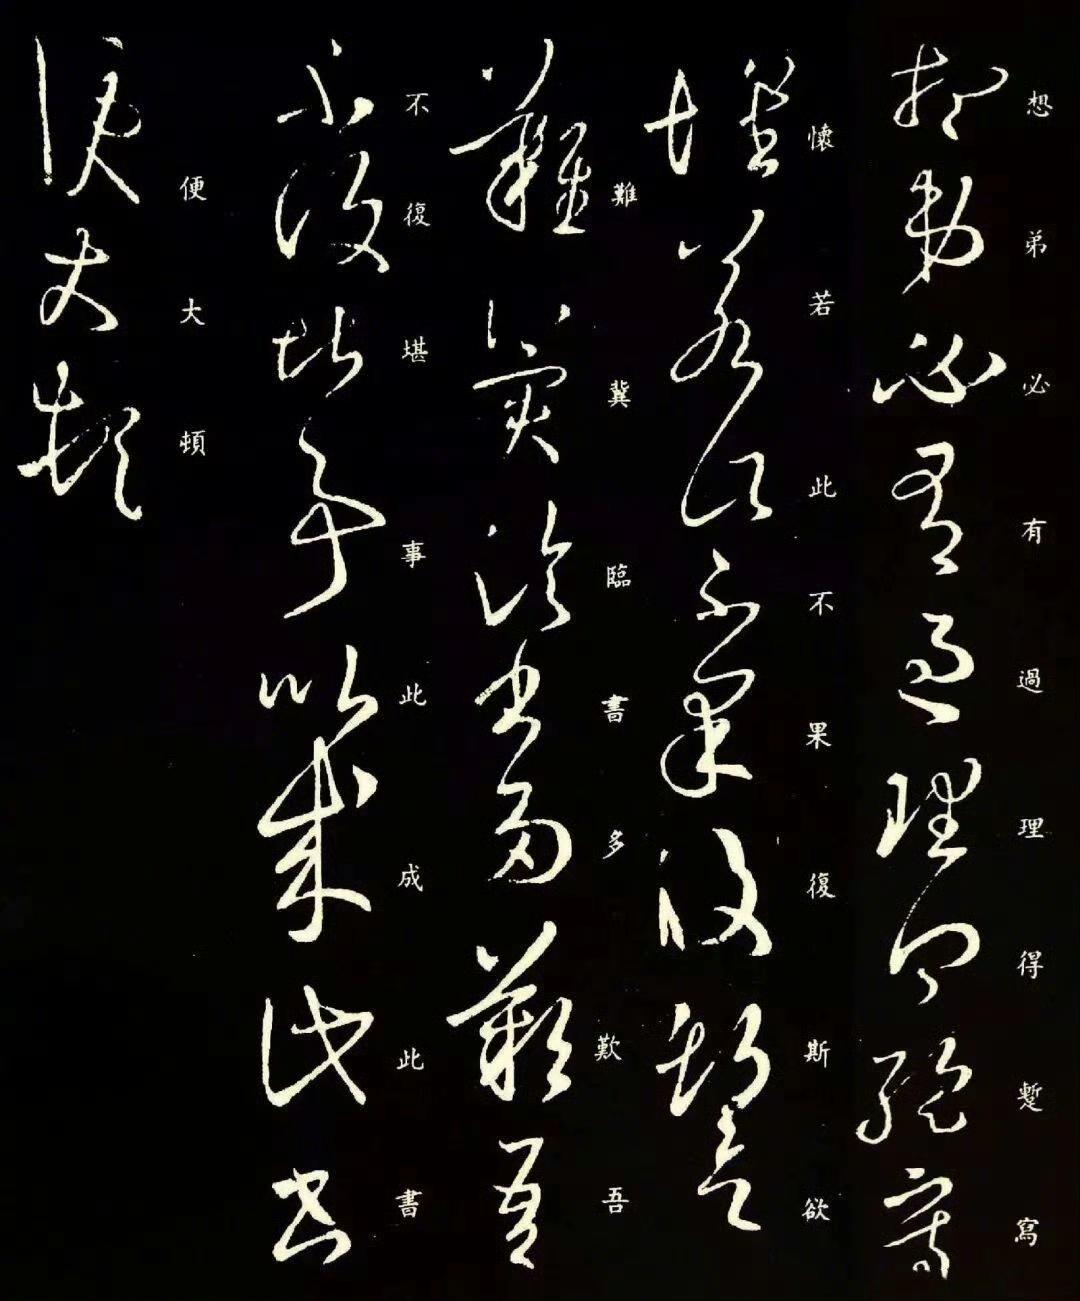 想弟必有過理得蹔寫
懷若此不果復斯欲
難冀臨書多歎吾
不復堪事此成此書
便大頓